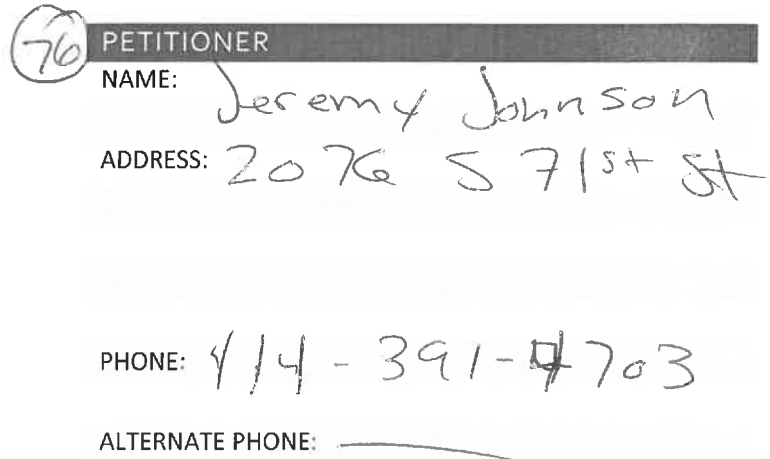 76 PETITIONER
NAME: Jeremy Johnson
ADDRESS: 2076 S 71st St
PHONE: 414-391-4703
ALTERNATE PHONE: